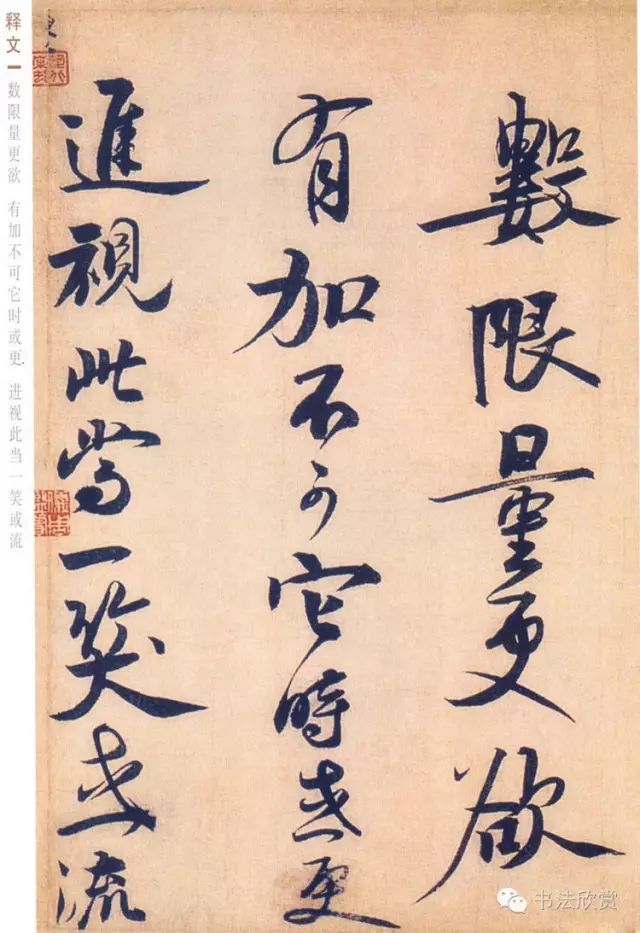 數限量更欲
有加不可它時或更
進視此當一笑或流
释文
数限量更欲 有加不可它时或更. 进视此当一笑或流
书法欣赏